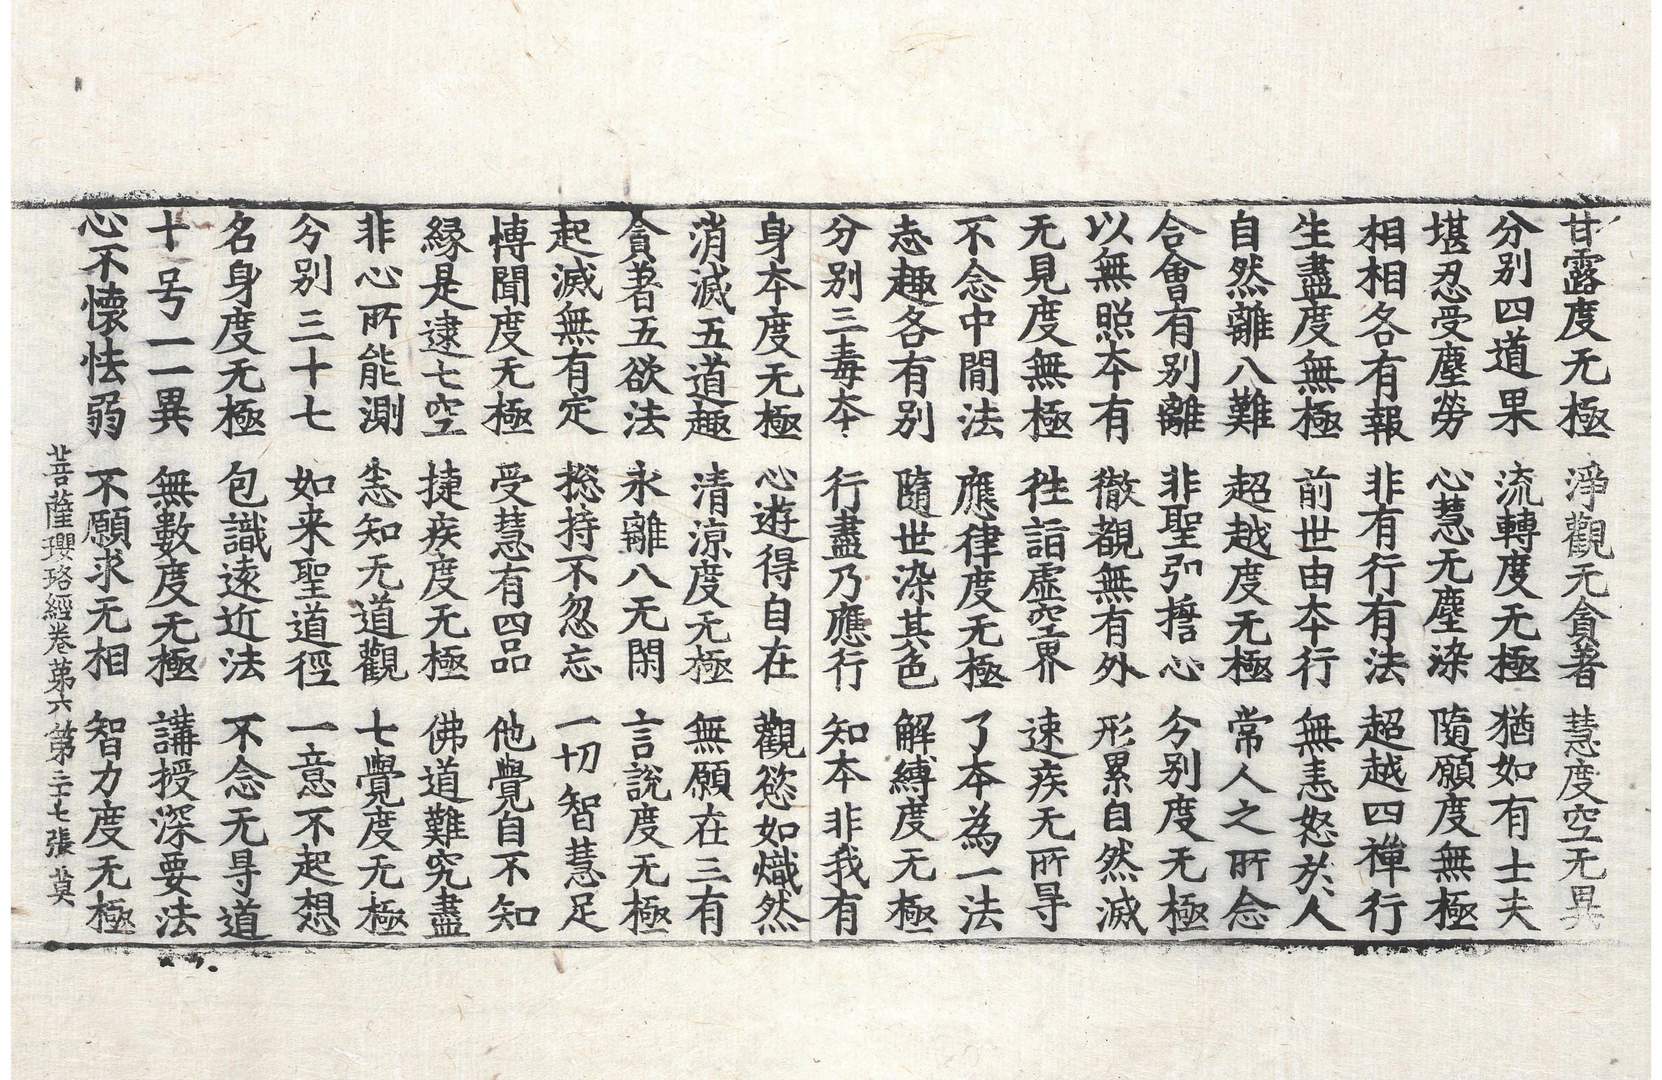 甘露度无極 淨觀无貪著 慧度空无異
分別四道果 流轉度无極 猶如有士夫
堪忍受塵勞 心慧无塵染 隨願度無極
相相各有報 非有行有法 超越四禪行
生盡度無極 前世由本行 無恚怒於人
自然離八難 超越度无極 常人之所念
合會有別離 非聖引擔心 分別度无極
以無照本有 徹覩無有外 形累自然滅
无見度無極 徃詣虛空界 速疾无所㝵
不念中間法 應律度无極 了本為一法
志趣各有別 隨世染其色 解縛度无極
分別三毒本 行盡乃應行 知本非我有
身本度无極 心遊得自在 觀慾如熾然
消滅五道趣 清涼度无極 無願在三有
貪著五欲法 永離八无閑 言說度无極
起滅無有定 捴持不忽忘 一切智慧足
博聞度无極 受慧有四品 他覺自不知
緣是逮七空 捷疾度无極 佛道難究盡
非心所能測 悉知无道觀 七覺度无極
分別三十七 如来聖道徑 一意不起想
名身度无極 包識遠近法 不念无㝵道
十号一一異 無數度无極 講授深要法
心不懷怯弱 不願求无相 智力度无極
菩薩瓔珞經卷第六 第二十七張 莫